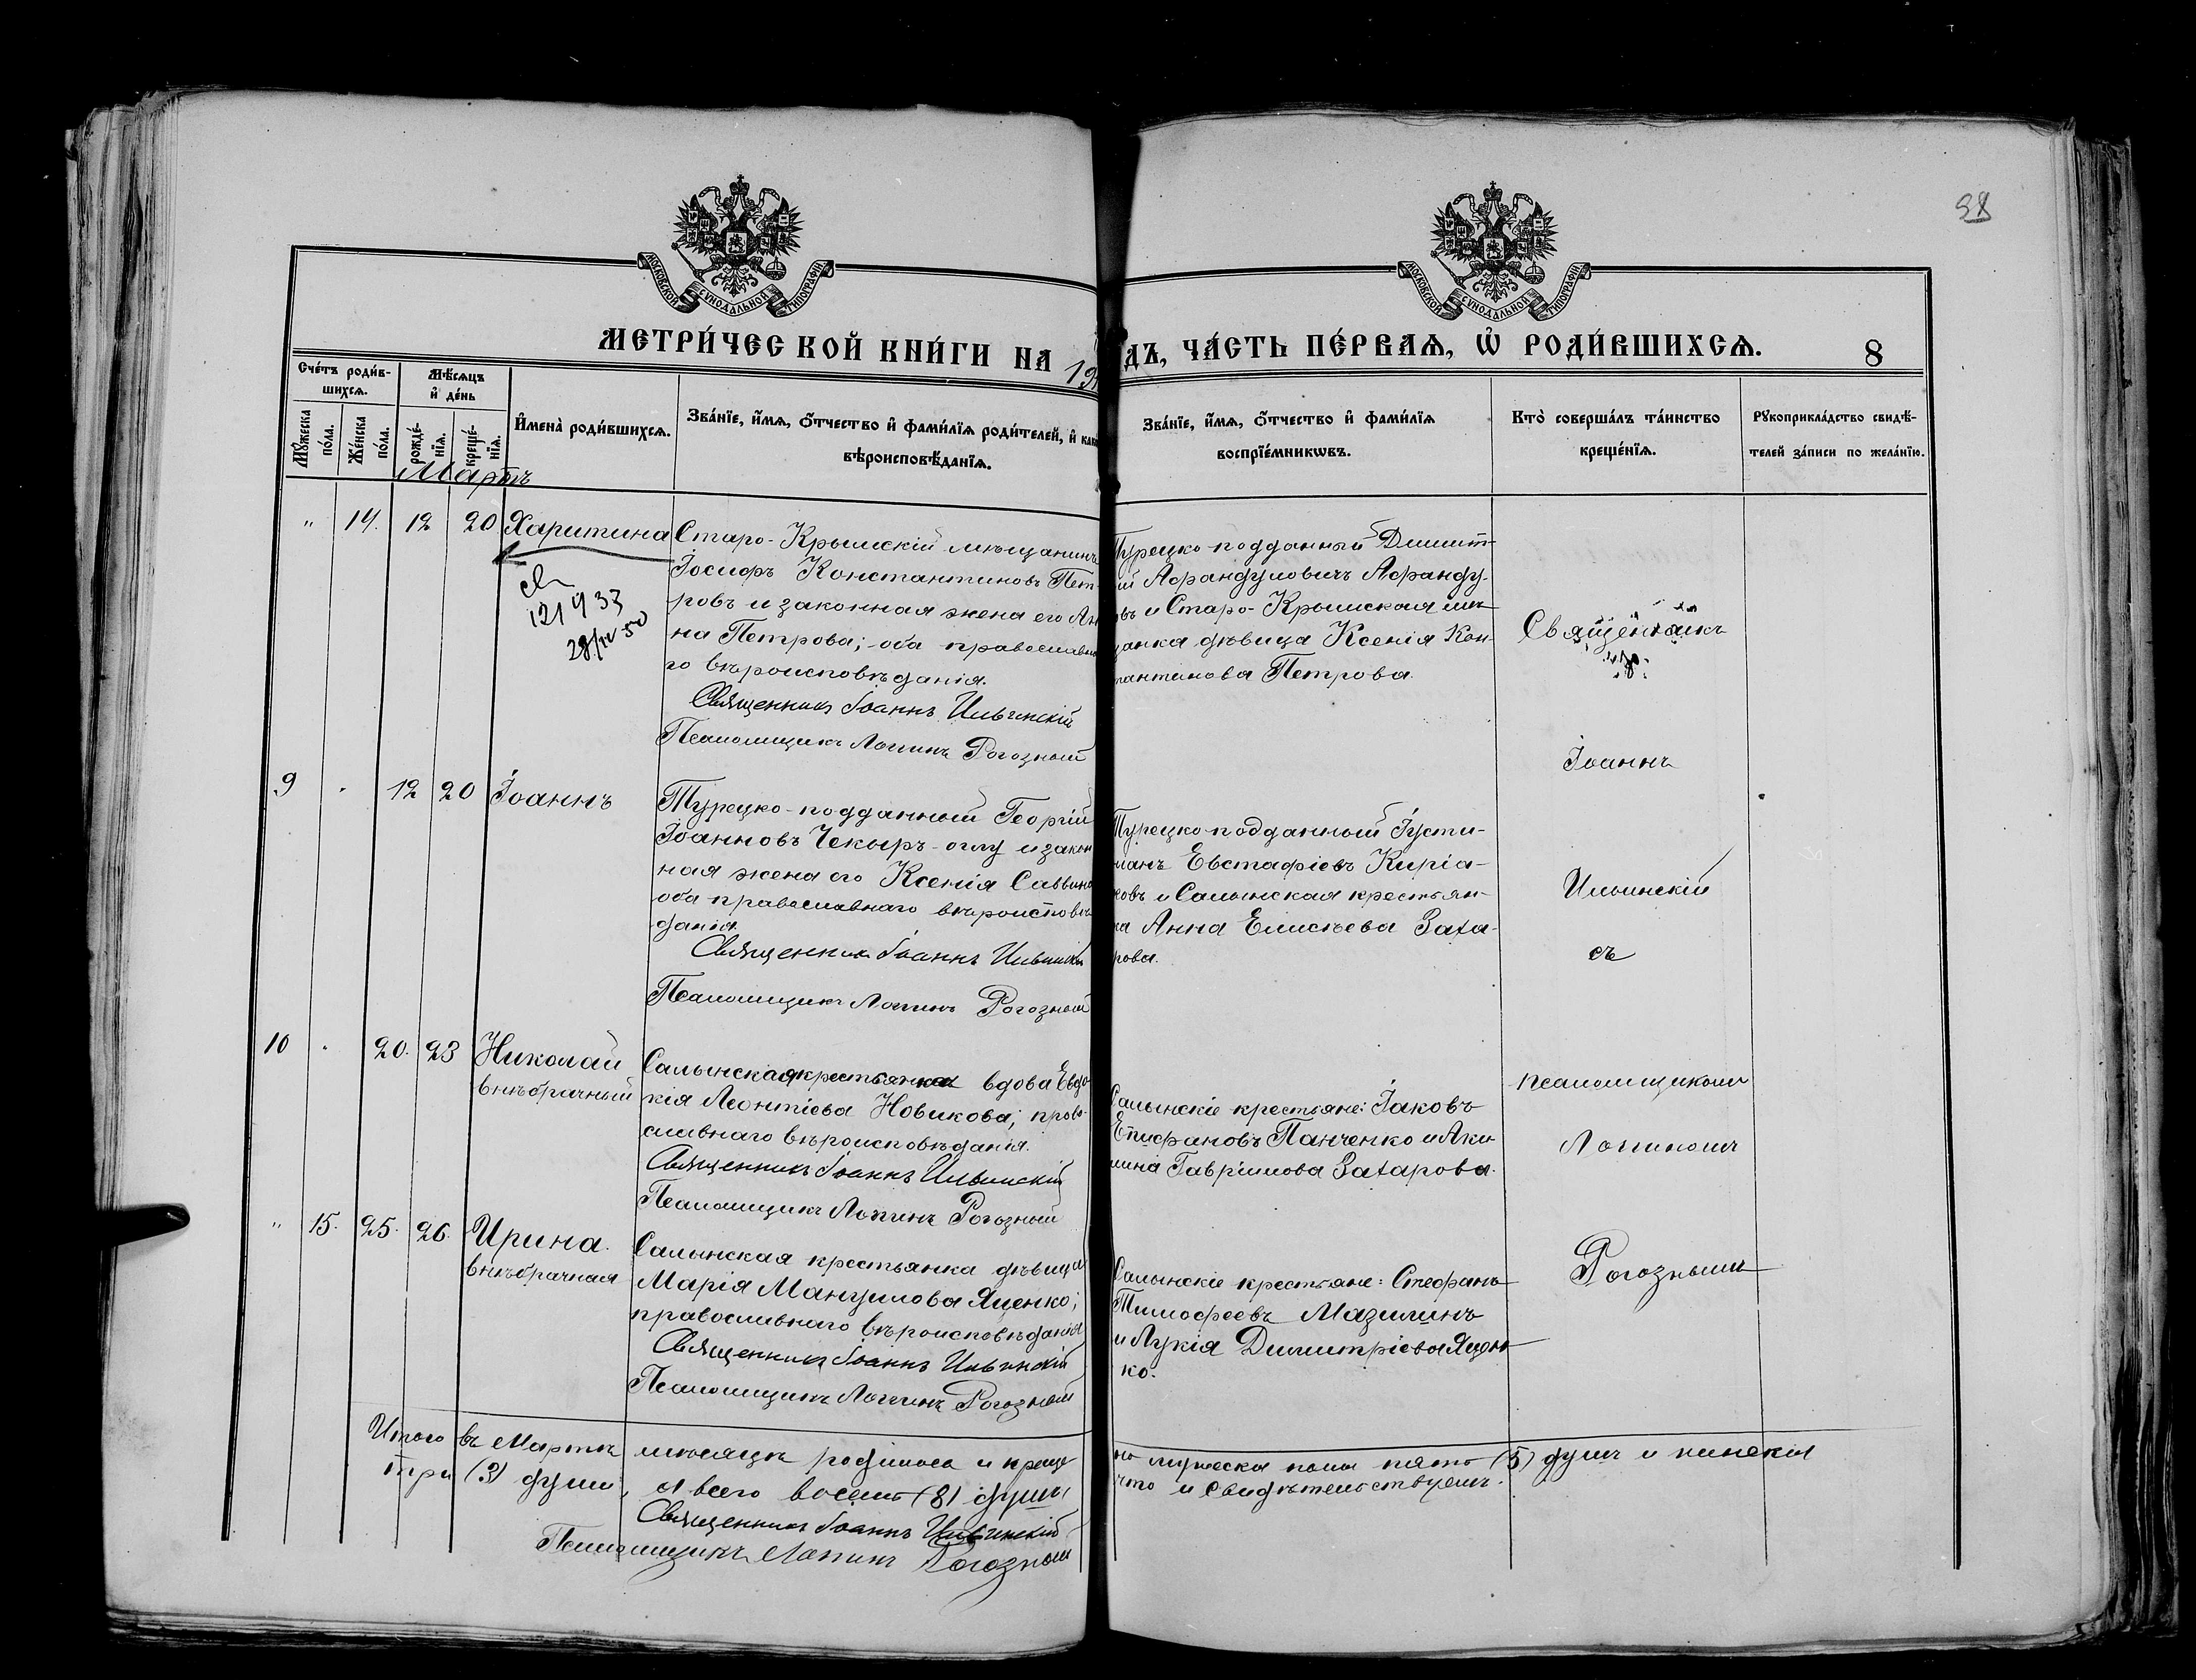 38
МОСКОВСКОЙ СѴНОДАЛЬНОЙ ТИПОГРАФІИ
МОСКОВСКОЙ СѴНОДАЛЬНОЙ ТИПОГРАФІИ
МЕТРИ́ЧЕСКОЙ КНИ́ГИ НА 19
ДЪ, ЧА́СТЬ ПЕ́РВАѦ, Ѡ РОДИ́ВШИХСѦ. 8
Сче́тъ роди́в-
шихсѧ.
Мѣ́сѧцъ
и҆ де́нь
Мꙋ́жеска
по́ла.
Же́нска
по́ла.
рожде́-
нїѧ.
креще́-
нїѧ.
И҆мена̀ роди́вшихсѧ.
Зва́нїе, и҆́мѧ, ѻ҆́тчество и҆ фами́лїѧ роди́телей, и҆
вѣроисповѣ́данїѧ.
Зва́нїе, и҆́мѧ, ѻ҆́тчество и҆ фами́лїѧ
воспрїе́мникѡвъ.
Кто̀ соверша́лъ та́инство
креще́нїѧ.
Рꙋкоприкла́дство свидѣ́-
телей за́писи по жела́нїю.
Мартъ
" 14. 12 20 Харитина
Старо-Крымскій мѣщанинъ
Іосифъ Константиновъ Пет-
ровъ и законная жена его Ан
на Петрова; оба православна
го вѣроисповѣданія.
Священникъ Іоаннъ Ильинскій
Псаломщикъ Логинъ Рогозный
121933
28/IV 50
Турецко-подданный Димит-
ій Афандуловичъ Афанду-
въ и Старо-Крымская мѣ
анка дѣвица Ксенія Кон-
тантинова Петрова.
Священникъ
Іоаннъ
Ильинскій
съ
псаломщикомъ
Логиномъ
Рогознымъ
9 . 12 20 Іоаннъ
Турецко-подданный Георгій
Іоанновъ Чекыръ-оглу и закон
ная жена его Ксенія Саввина
оба православнаго вѣроисповѣ
данія.
Священникъ Іоаннъ Ильинскій
Псаломщикъ Логинъ Рогозный
Турецко-подданный Іусти-
ніанъ Евстафіевъ Киріа-
ковъ и Салынская крестьян-
ка Анна Елисѣева Заха-
рова.
10 . 20. 23 Николай
внѣбрачный
Салынская крестьянка вдова Евдо
кія Леонтіева Новикова; право-
славнаго вѣроисповѣданія.
Священникъ Іоаннъ Ильинскій
Псаломщикъ Логинъ Рогозный
Салынскіе крестьяне: Іаковъ
Епифановъ Панченко и Аки
лина Гавріилова Захарова.
" 15. 25. 26. Ирина.
внѣбрачная
Салынская крестьянка дѣвица
Марія Мануилова Яценко;
православнаго вѣроисповѣданія
Священникъ Іоаннъ Ильинскій
Псаломщикъ Логинъ Рогозный
Салынскіе крестьяне: Стефанъ
Тимофеевъ Мазилинъ
и Лукія Димитріева Яцен
ко.
Итого въ Мартѣ мѣсяцѣ родилось и креще
но мужеска пола пять (5) душъ и женска
три (3) души, а всего восемь (8) душъ
что и свидѣтельствуемъ.
Священникъ Іоаннъ Ильинскій
Псаломщикъ Логинъ Рогозный